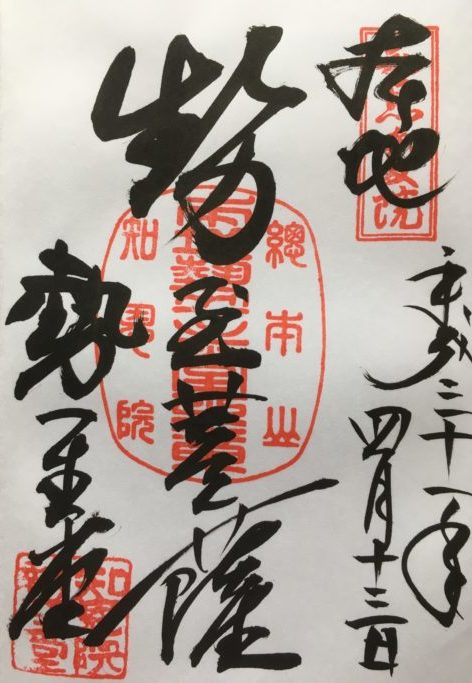 本地
平成三十一年
四月十三日
勢至菩薩
總本山
知恩院
勢至堂
知恩院
勢至堂